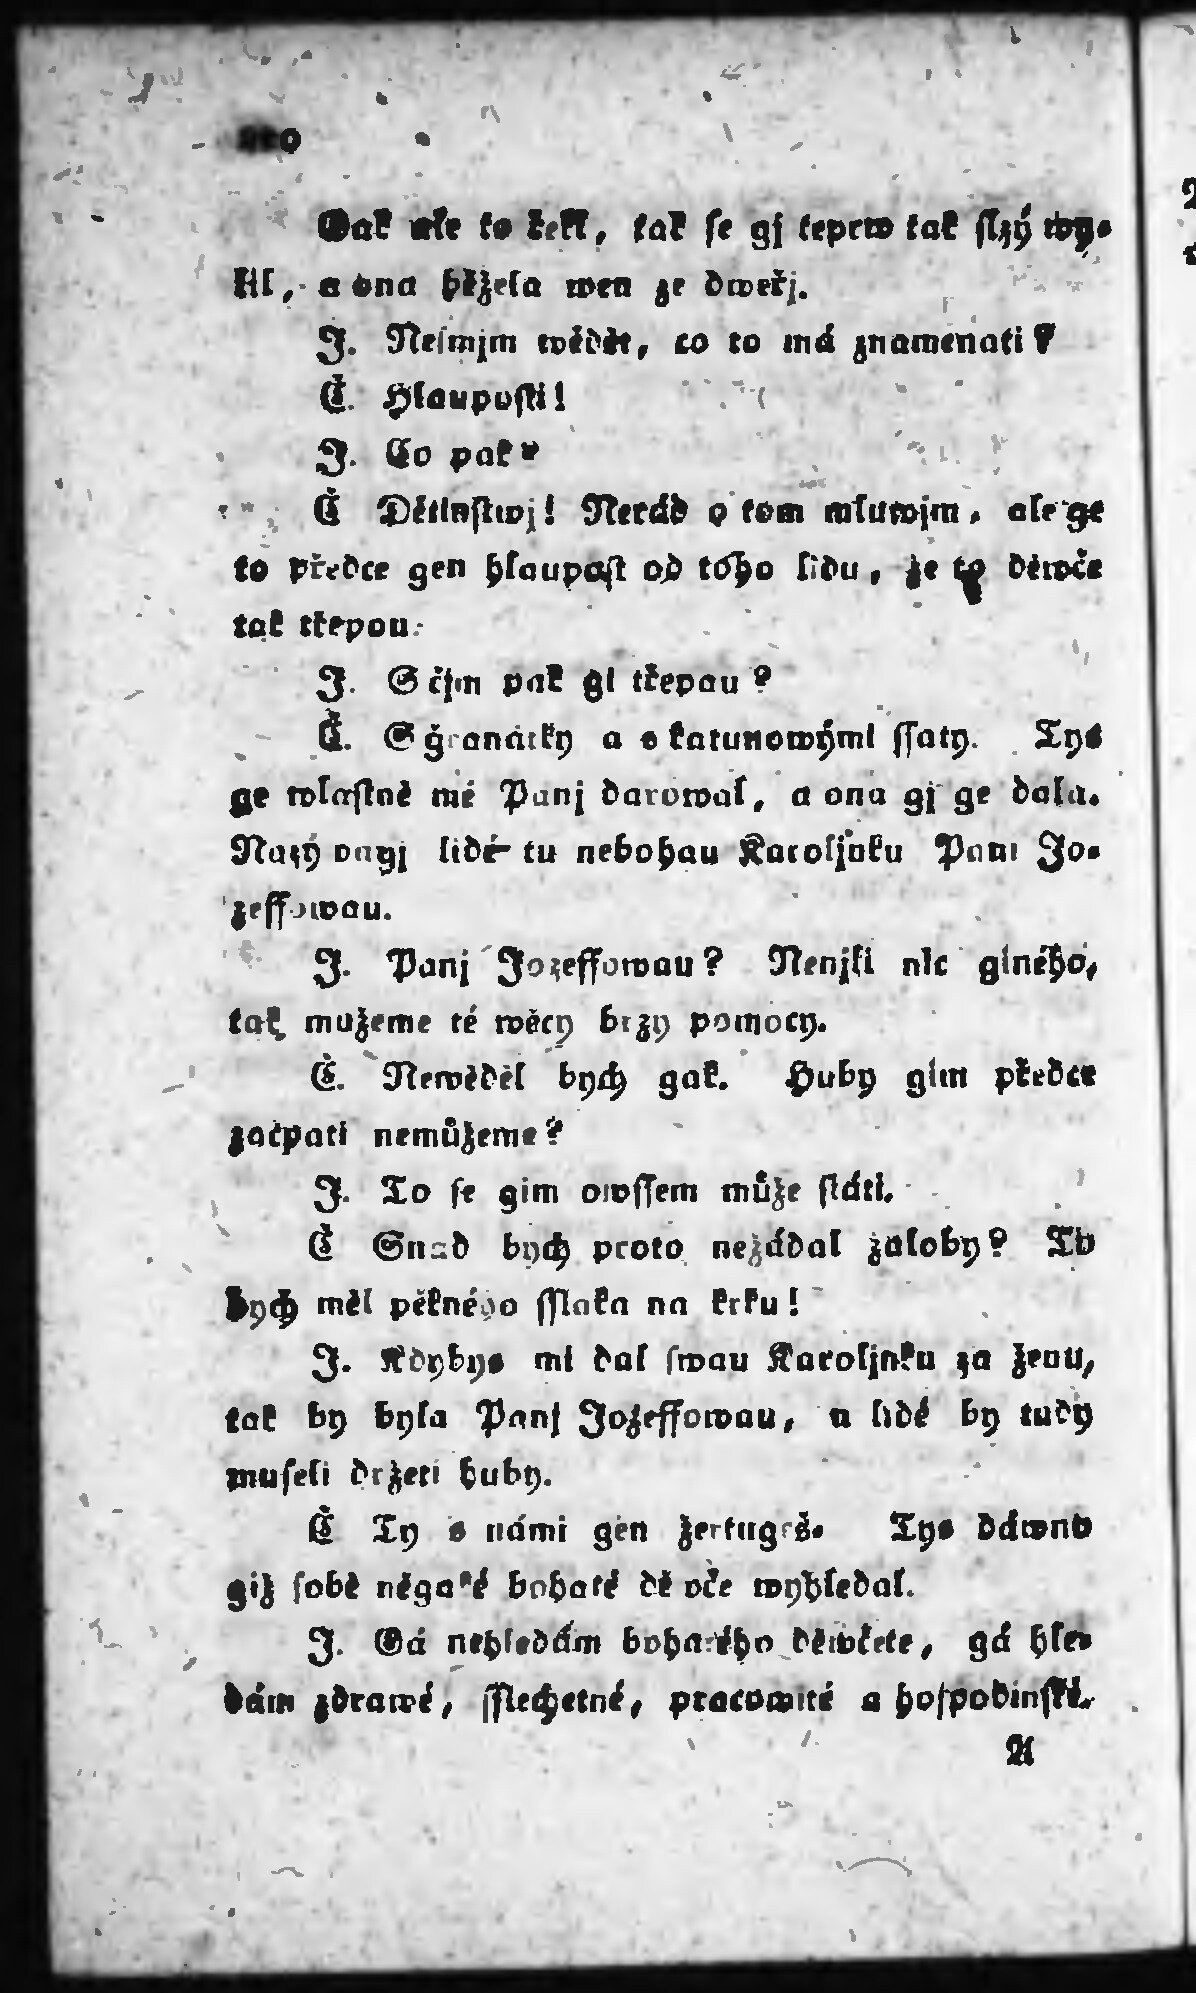 Gak wsse to řekl, tak se gj teprw tak slzý wy-
lil, a ona běžela wen ze dweřj.
J. Nesmjm wěděti, co to má znamenati?
Č. Hlauposti!
J. Co pak?
Č Dětinstwj! Nerád o tom mluwjm, ale ge
to předce gen hlaupost od toho lidu, že to děwče
tak třepou.
J. S čjm pak gi třepau?
Č. S granátky a s katunowými ssaty. Tys
ge wlastně mé Panj darowal, a ona gj ge dala.
Nazýwagj lidé tu nebohau Karoljnku Pani Jo-
zeffowau.
J. Panj Jozeffowau? Nenjli nic giného,
tak mužeme té wěcy brzy pomocy.
Č. Newěděl bych gak. Huby gim předce
zacpati nemůžeme?
J. To se gim owssem může státi.
Č Snad bych proto nežádal žaloby? To
bych měl pěkného sslaka na krku!
J. Kdybys mi dal swau Karoljnku za ženu,
tak by byla Panj Jožeffowau, a lidé by tudy
museli držeti huby.
Č Ty s námi gen žertugeš. Tys dáwno
giž sobě negaké bohaté děwče wyhledal.
J. Gá nehledám bohatého děwčete, gá hle-
dám zdrawé, sslechetné, pracowité a hospodinské.
A